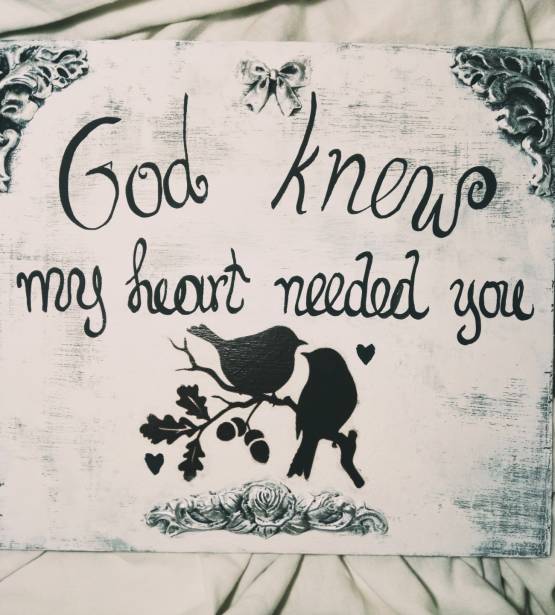 God knew
my heart needed you